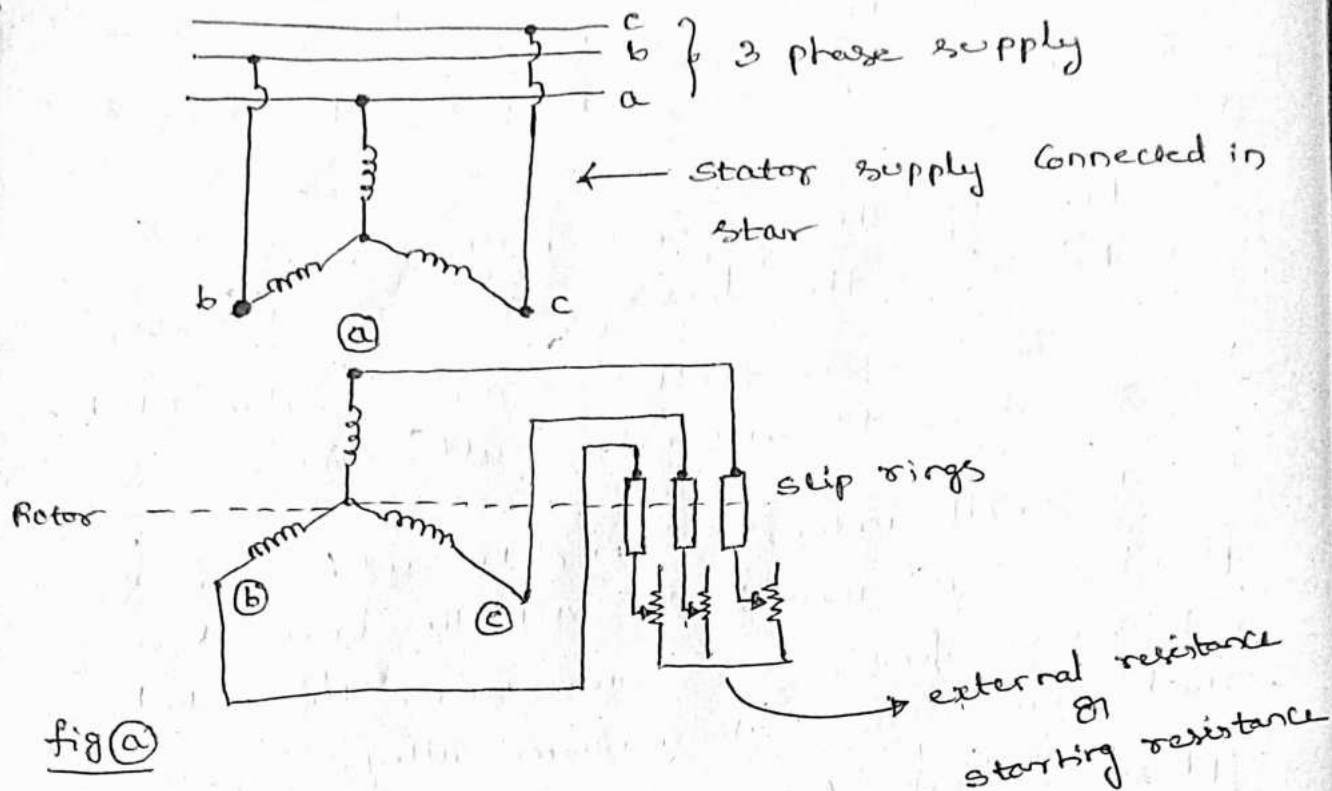 c
b } 3 phase supply
a
← Stator supply Connected in
star
b
c
ⓐ
slip rings
Rotor
ⓑ
ⓒ
external resistance
or
starting resistance
fig ⓐ